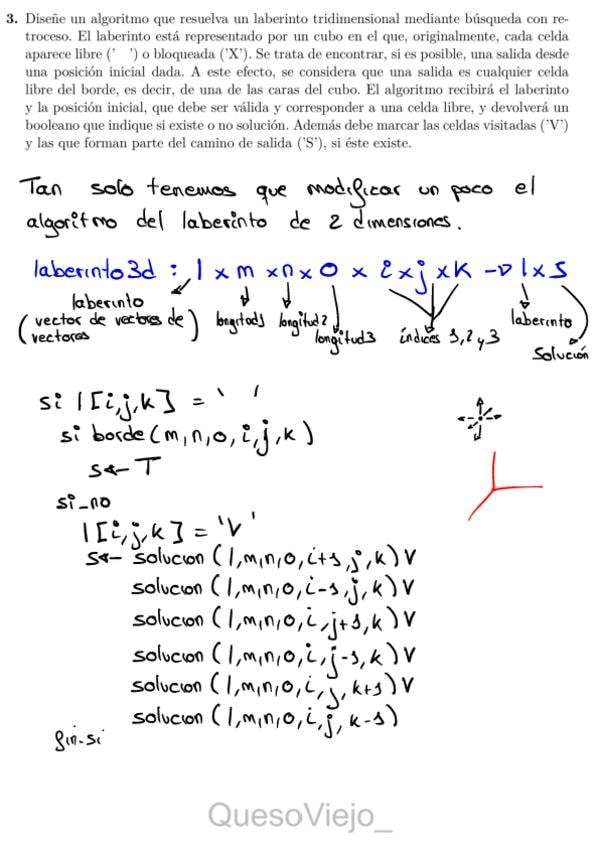 3. Diseñe un algoritmo que resuelva un laberinto tridimensional mediante búsqueda con re-
troceso. El laberinto está representado por un cubo en el que, originalmente, cada celda
aparece libre (' ') o bloqueada ('X'). Se trata de encontrar, si es posible, una salida desde
una posición inicial dada. A este efecto, se considera que una salida es cualquier celda
libre del borde, es decir, de una de las caras del cubo. El algoritmo recibirá el laberinto
y la posición inicial, que debe ser válida y corresponder a una celda libre, y devolverá un
booleano que indique si existe o no solución. Además debe marcar las celdas visitadas ('V')
y las que forman parte del camino de salida ('S'), si éste existe.
Tan solo tenemos que modificar un poco el
algoritmo del laberinto de 2 dimensiones.
laberinto3d : l x m x n x o x i x j x k → l x s
laberinto
(vector de vectores de
vectores)
longitud1
longitud2
longitud3
índices 1, 2 y 3
laberinto
solución
si l[i,j,k] = ' '
si borde(m,n,o,i,j,k)
s← T
si_no
l[i,j,k] = 'V'
s← solucion(l,m,n,o,i+1,j,k) V
solucion(l,m,n,o,i-1,j,k) V
solucion(l,m,n,o,i,j+1,k) V
solucion(l,m,n,o,i,j-1,k) V
solucion(l,m,n,o,i,j,k+1) V
solucion(l,m,n,o,i,j,k-1)
fin-si
QuesoViejo_